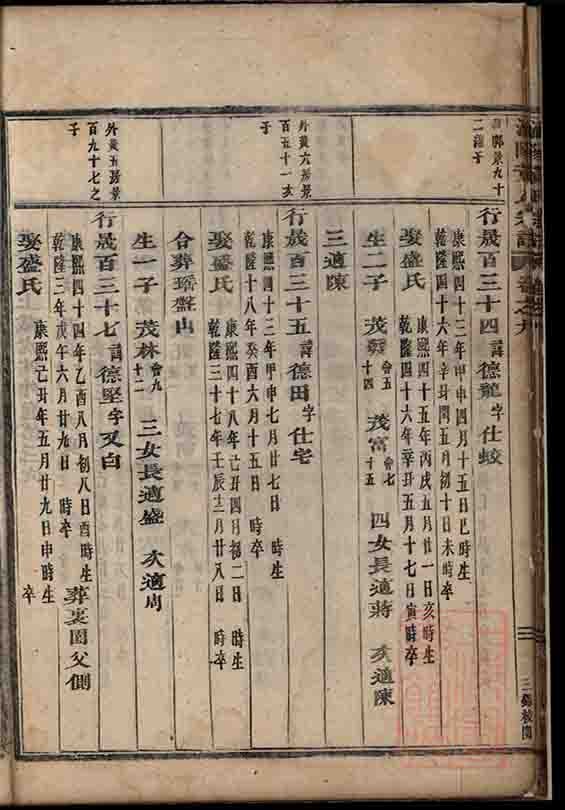 九十
二繼子
行晟百三十四諱德龍字仕蛟
康熙四十三年甲申四月十五日巳時生
乾隆四十六年辛丑閏五月初十日未時卒
娶盛氏
康熙四十五年丙戌五月廿一日亥時生
乾隆四十六年辛丑五月十七日寅時卒
生二子 茂 會五十四 茂富 會七十五 四女長適蔣 次適陳
三適陳
外黃六房景
百五十一次
子
行晟百三十五諱德田字仕宅
康熙四十三年甲申七月廿七日 時生
乾隆十八年癸酉六月十五日 時卒
娶盛氏
康熙四十八年己丑四月初二日 時生
乾隆三十七年壬辰十二月廿八日 時卒
合葬瑶盤山
生一子 茂林 會九十二 三女長適盛 次適周
外黃五房景
百九十七之
子
行晟百三十七諱德堅字又白
康熙四十四年乙酉八月初八日酉時生
乾隆三年戊午六月廿九日 時卒
葬裏園父側
娶盛氏
康熙己丑年五月廿九日申時生
卒